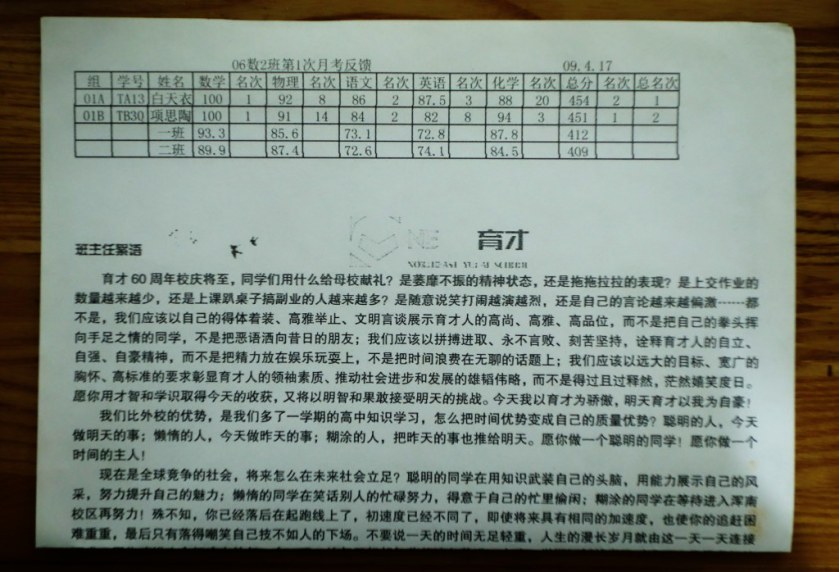 06数2班第1次月考反馈 09.4.17
组 学号 姓名 数学 名次 物理 名次 语文 名次 英语 名次 化学 名次 总分 名次 总名次
01A TA13 白天衣 100 1 92 8 86 2 87.5 3 88 20 454 2 1
01B TB30 项思陶 100 1 91 14 84 2 82 8 94 3 451 1 2
一班 93.3 85.6 73.1 72.8 87.8 412
二班 89.9 87.4 72.6 74.1 84.5 409
育才
班主任絮语
育才60周年校庆将至，同学们用什么给母校献礼？是萎靡不振的精神状态，还是拖拖拉拉的表现？是上交作业的
数量越来越少，还是上课趴桌子搞副业的人越来越多？是随意说笑打闹越演越烈，还是自己的言论越来越偏激……都
不是，我们应该以自己的得体着装、高雅举止、文明言谈展示育才人的高尚、高雅、高品位，而不是把自己的拳头挥
向手足之情的同学，不是把恶语洒向昔日的朋友；我们应该以拼搏进取、永不言败、刻苦坚持，诠释育才人的自立、
自强、自豪精神，而不是把精力放在娱乐玩耍上，不是把时间浪费在无聊的话题上；我们应该以远大的目标、宽广的
胸怀、高标准的要求彰显育才人的领袖素质、推动社会进步和发展的雄韬伟略，而不是得过且过释然，茫然嬉笑度日。
愿你用才智和学识取得今天的收获，又将以明智和果敢接受明天的挑战。今天我以育才为骄傲，明天育才以我为自豪！
我们比外校的优势，是我们多了一学期的高中知识学习，怎么把时间优势变成自己的质量优势？聪明的人，今天
做明天的事；懒惰的人，今天做昨天的事；糊涂的人，把昨天的事也推给明天。愿你做一个聪明的同学！愿你做一个
时间的主人！
现在是全球竞争的社会，将来怎么在未来社会立足？聪明的同学在用知识武装自己的头脑，用能力展示自己的风
采，努力提升自己的魅力；懒惰的同学在笑话别人的忙碌努力，得意于自己的忙里偷闲；糊涂的同学在等待进入浑南
校区再努力！殊不知，你已经落后在起跑线上了，初速度已经不同了，即使将来具有相同的加速度，也使你的追赶困
难重重，最后只有落得嘲笑自己技不如人的下场。不要说一天的时间无足轻重，人生的漫长岁月就由这一天一天连接